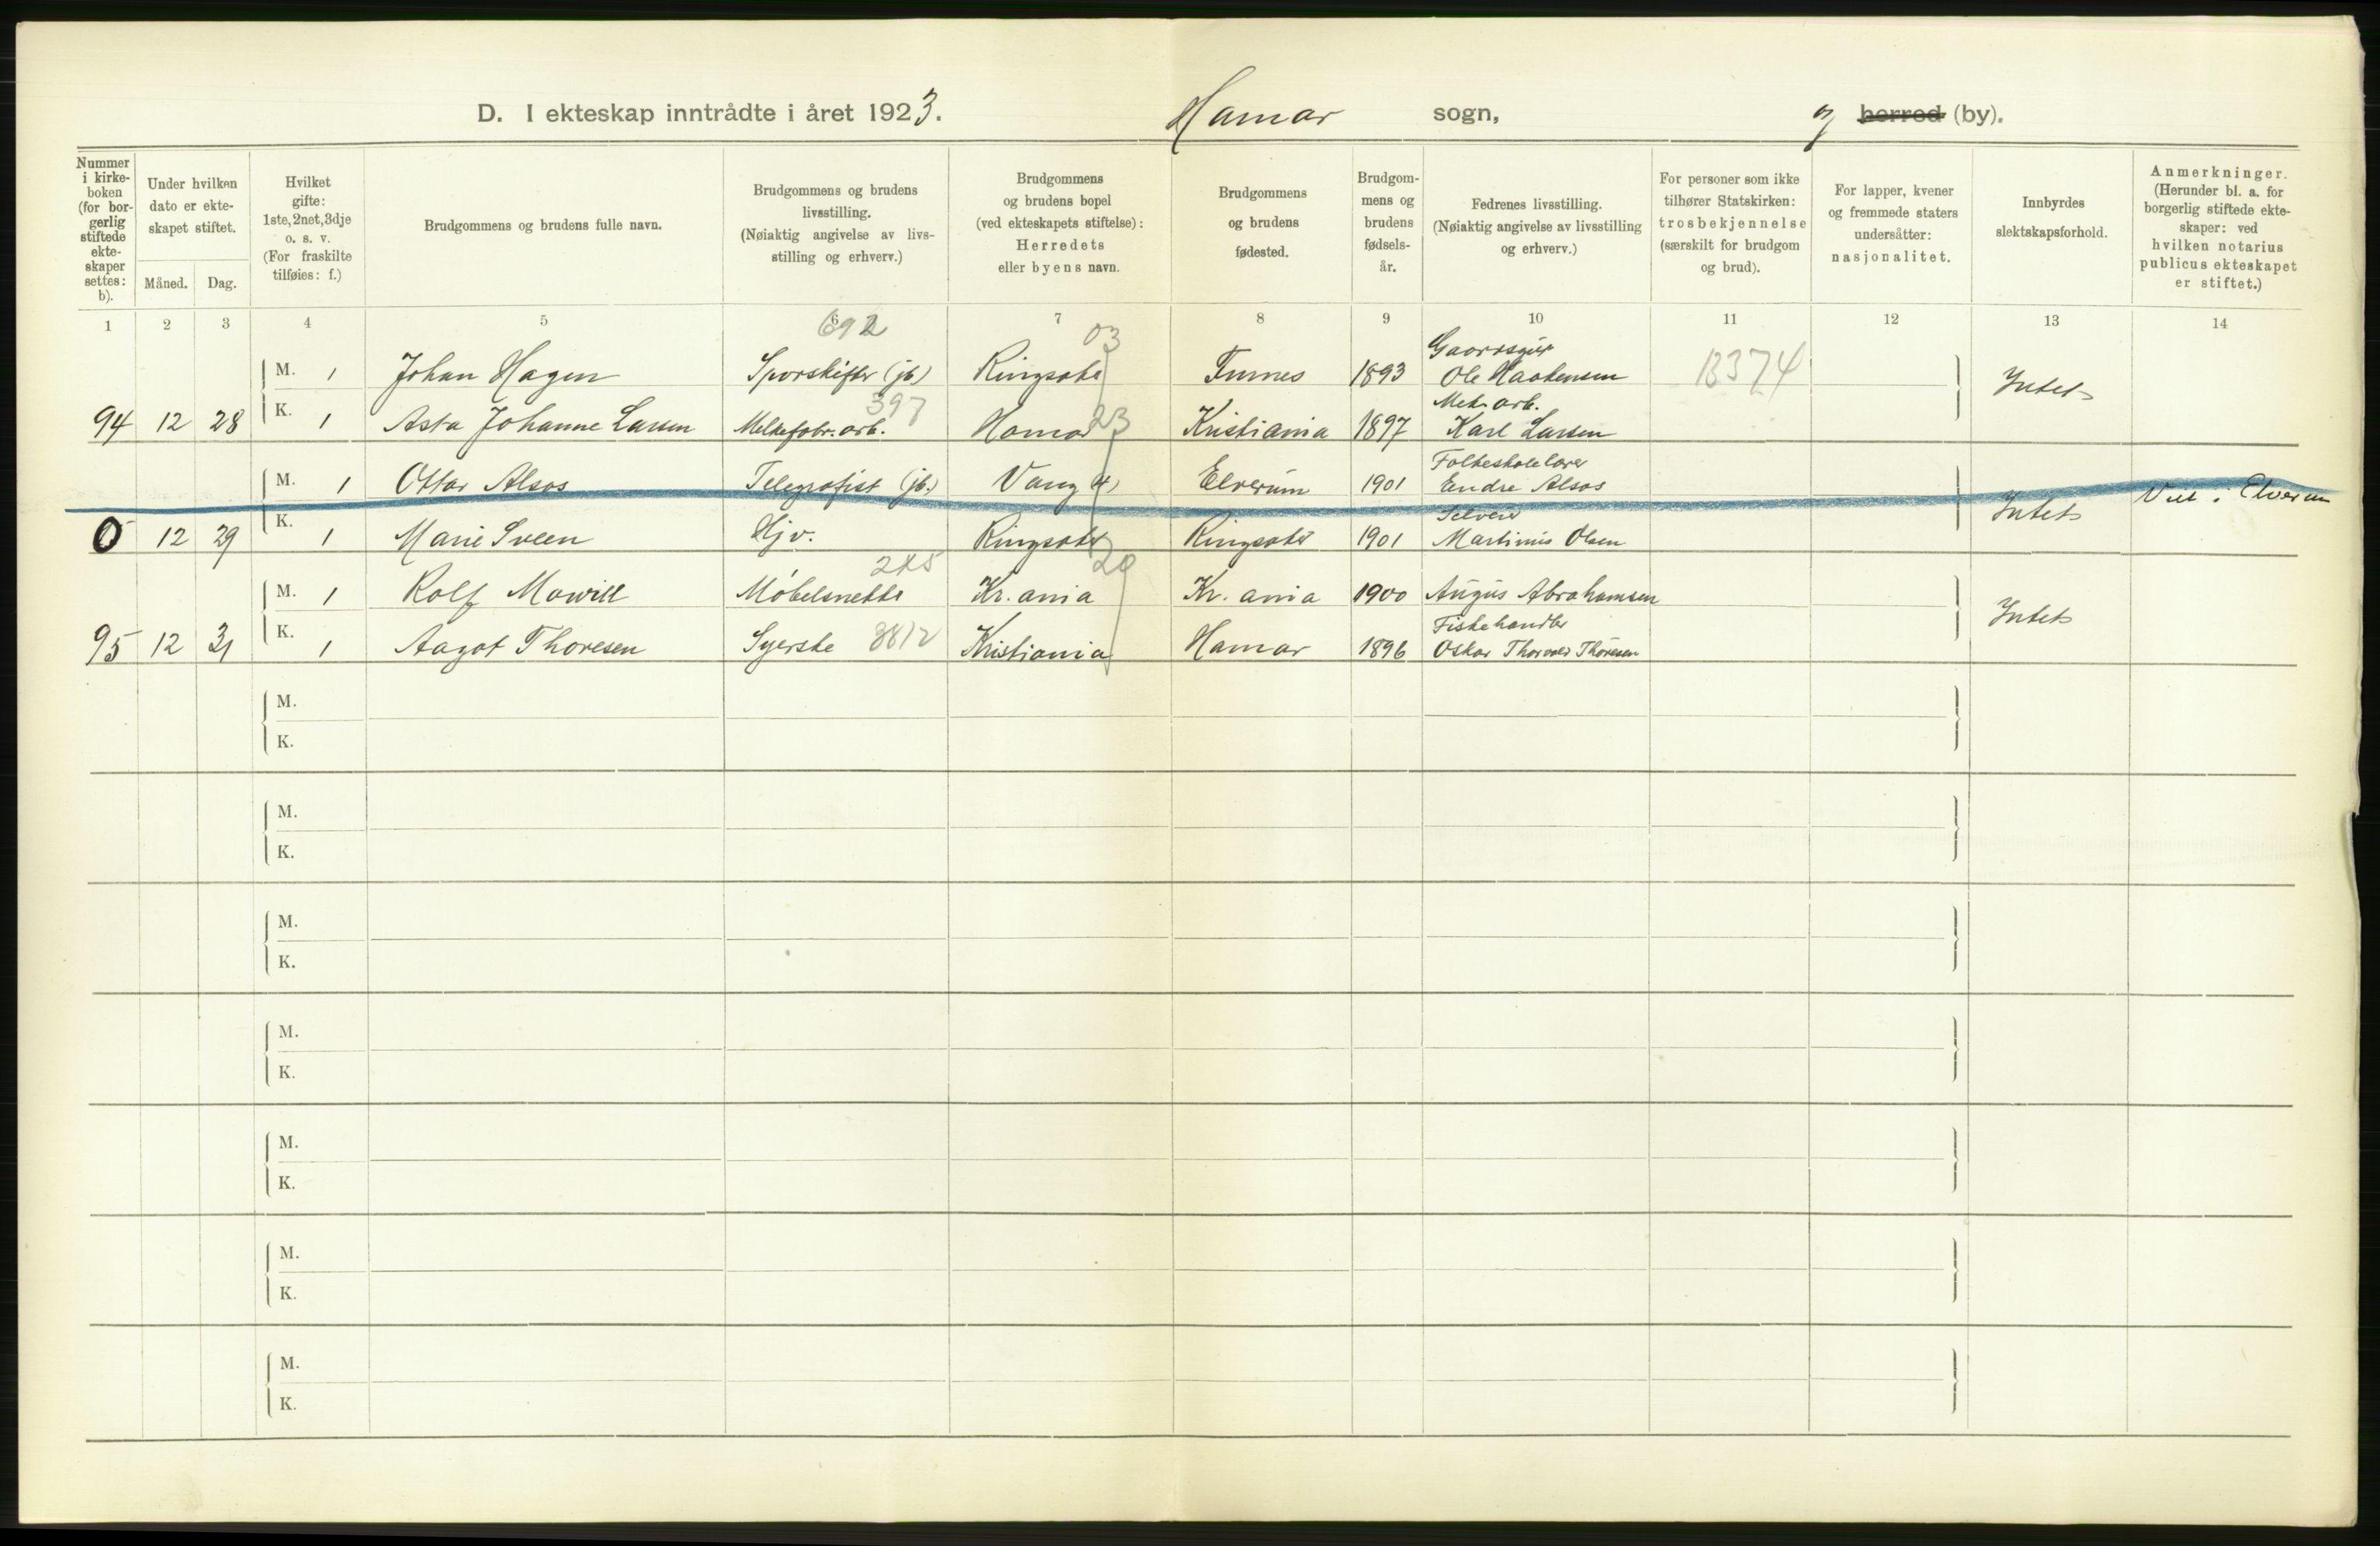 D. I ekteskap inntrådte i året 1923. Hamar sogn, og herred (by).
Nummer i kirkeboken (for borgerlig stiftede ekteskaper settes: b).
Under hvilken dato er ekteskapet stiftet.
Måned. Dag.
Hvilket gifte: 1ste, 2net, 3dje o. s. v. (For fraskilte tilføies: f.)
Brudgommens og brudens fulle navn.
Brudgommens og brudens livsstilling. (Nøiaktig angivelse av livsstilling og erhverv.)
Brudgommens og brudens bopel (ved ekteskapets stiftelse): Herredets eller byens navn.
Brudgommens og brudens fødested.
Brudgommens og brudens fødselsår.
Fedrenes livsstilling. (Nøiaktig angivelse av livsstilling og erhverv.)
For personer som ikke tilhører Statskirken: trosbekjennelse (særskilt for brudgom og brud).
For lapper, kvener og fremmede staters undersåtter: nasjonalitet.
Innbyrdes slektskapsforhold.
Anmerkninger. (Herunder bl. a. for borgerlig stiftede ekteskaper: ved hvilken notarius publicus ekteskapet er stiftet.)
1 2 3 4 5 6 7 8 9 10 11 12 13 14
692 03
M. 1 Johan Hagen Sporskifter (jb) Ringsaker Furnes 1893 Ole Haakensen 13374 Intet
397 23 Mek. arb.
94 12 28 K. 1 Asta Johanne Larsen Melkefabr. arb. Hamar Kristiania 1897 Karl Larsen
Folkeskolelærer
M. 1 Ottar Alsos Telegrafist (jb.) Vang Elverum 1901 Endre Alsos Intet Viet i Elverum
Selveier
0 12 29 K. 1 Marie Sveen Hjv. Ringsaker Ringsaker 1901 Martinius Olsen
245 20
M. 1 Rolf Mowill Møbelsnekker Kr. ania Kr. ania 1900 August Abrahamsen Intet
Fiskehandler
95 12 31 K. 1 Aagot Thoresen Syerske 3812 Kristiania Hamar 1896 Oskar Thorvald Thoresen
M.
K.
M.
K.
M.
K.
M.
K.
M.
K.
M.
K.
M.
K.